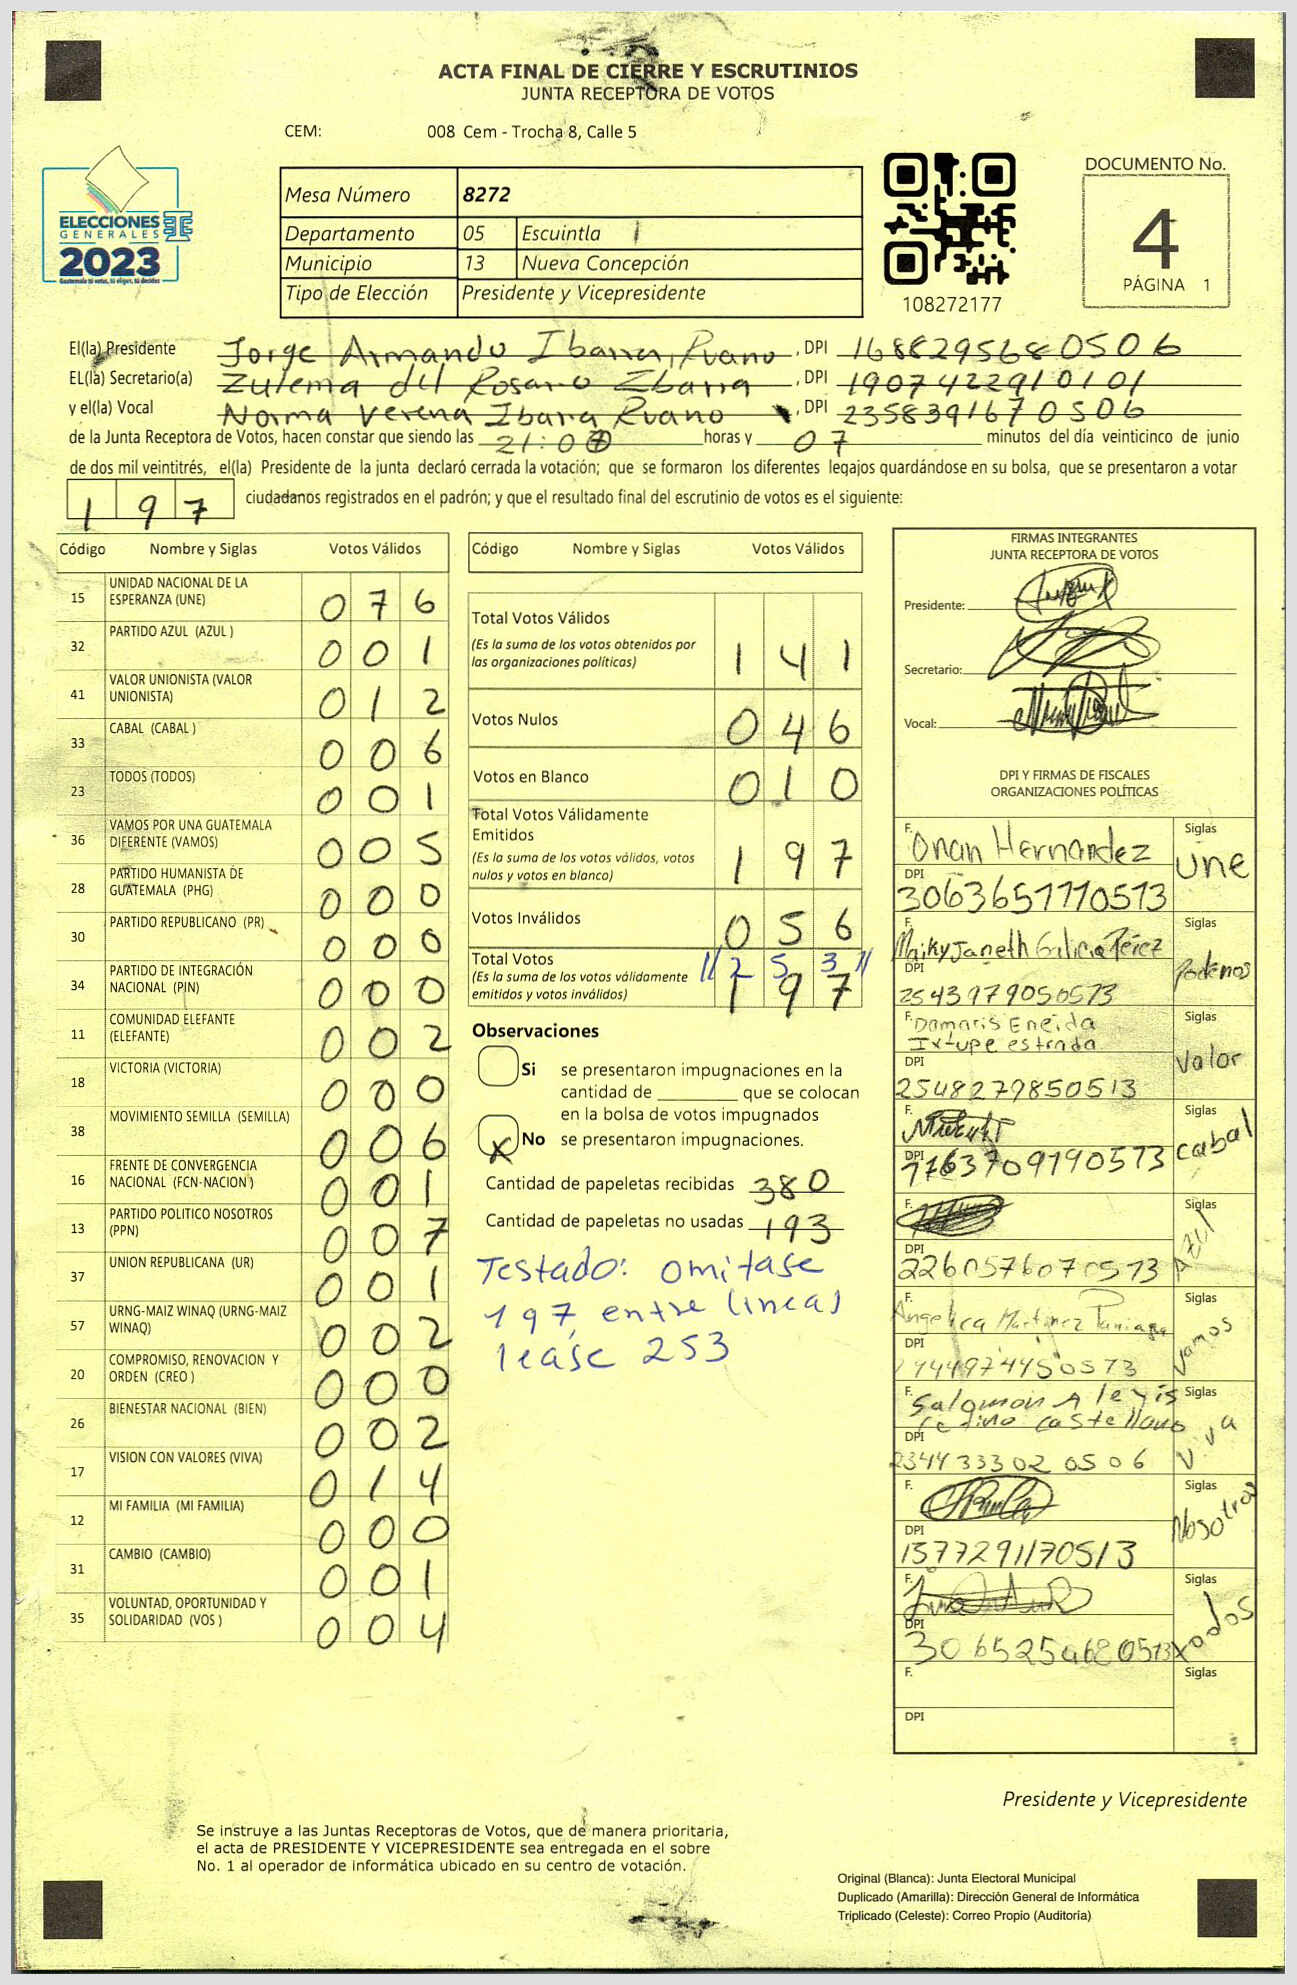 ACTA FINAL DE CIERRE Y ESCRUTINIOS
JUNTA RECEPTORA DE VOTOS
CEM: 008 Cem - Trocha 8, Calle 5
ELECCIONES
GENERALES
2023
Guatemala tú votas, tú eliges, tú decides
Mesa Número 8272
Departamento 05 Escuintla
Municipio 13 Nueva Concepción
Tipo de Elección Presidente y Vicepresidente
108272177
DOCUMENTO No.
4
PÁGINA 1
El(la) Presidente Jorge Armando Ibarra Ruano, DPI 1688295680506
EL(la) Secretario(a) Zulema del Rosario Ibarra, DPI 1907422910101
y el(la) Vocal Norma Verena Ibarra Ruano, DPI 2358391670506
de la Junta Receptora de Votos, hacen constar que siendo las 21:07 horas y 07 minutos del día veinticinco de junio
de dos mil veintitrés, el(la) Presidente de la junta declaró cerrada la votación; que se formaron los diferentes legajos quardándose en su bolsa, que se presentaron a votar
197 ciudadanos registrados en el padrón; y que el resultado final del escrutinio de votos es el siguiente:
Código Nombre y Siglas Votos Válidos
15 UNIDAD NACIONAL DE LA ESPERANZA (UNE) 076
32 PARTIDO AZUL (AZUL ) 001
41 VALOR UNIONISTA (VALOR UNIONISTA) 012
33 CABAL (CABAL ) 006
23 TODOS (TODOS) 001
36 VAMOS POR UNA GUATEMALA DIFERENTE (VAMOS) 005
28 PARTIDO HUMANISTA DE GUATEMALA (PHG) 000
30 PARTIDO REPUBLICANO (PR) 000
34 PARTIDO DE INTEGRACIÓN NACIONAL (PIN) 000
11 COMUNIDAD ELEFANTE (ELEFANTE) 002
18 VICTORIA (VICTORIA) 000
38 MOVIMIENTO SEMILLA (SEMILLA) 006
16 FRENTE DE CONVERGENCIA NACIONAL (FCN-NACION ) 001
13 PARTIDO POLITICO NOSOTROS (PPN) 007
37 UNION REPUBLICANA (UR) 001
57 URNG-MAIZ WINAQ (URNG-MAIZ WINAQ) 002
20 COMPROMISO, RENOVACION Y ORDEN (CREO ) 000
26 BIENESTAR NACIONAL (BIEN) 002
17 VISION CON VALORES (VIVA) 014
12 MI FAMILIA (MI FAMILIA) 000
31 CAMBIO (CAMBIO) 001
35 VOLUNTAD, OPORTUNIDAD Y SOLIDARIDAD (VOS ) 004
Código Nombre y Siglas Votos Válidos
Total Votos Válidos 141
(Es la suma de los votos obtenidos por
las organizaciones políticas)
Votos Nulos 046
Votos en Blanco 010
Total Votos Válidamente
Emitidos 197
(Es la suma de los votos válidos, votos
nulos y votos en blanco)
Votos Inválidos 056
Total Votos // 253 //
(Es la suma de los votos válidamente
emitidos y votos inválidos) 197
Observaciones
Si se presentaron impugnaciones en la
cantidad de ________ que se colocan
en la bolsa de votos impugnados
X No se presentaron impugnaciones.
Cantidad de papeletas recibidas 380
Cantidad de papeletas no usadas 193
Testado: omitase
197, entre lineas
lease 253
FIRMAS INTEGRANTES
JUNTA RECEPTORA DE VOTOS
Presidente:
Secretario:
Vocal:
DPI Y FIRMAS DE FISCALES
ORGANIZACIONES POLÍTICAS
F. Onan Hernandez Siglas une
DPI 3063651770513
F. Maiky Janeth Galicia Pérez Siglas Podemos
DPI 2543979050513
F. Damaris Eneida
Ixtupe estrada Siglas Valor
DPI 2548279850513
F. Siglas cabal
DPI 1763709190513
F. Siglas Azul
DPI 2260576070513
F. Angelica Martinez Paniagua Siglas Vamos
DPI
F. Salomon Aleyis
Cetino Castellano Siglas Viva
DPI 2344333020506
F. Siglas Nosotros
DPI 1577291170513
F. Siglas todos
DPI
F. Siglas
DPI
Presidente y Vicepresidente
Se instruye a las Juntas Receptoras de Votos, que de manera prioritaria,
el acta de PRESIDENTE Y VICEPRESIDENTE sea entregada en el sobre
No. 1 al operador de informática ubicado en su centro de votación.
Original (Blanca): Junta Electoral Municipal
Duplicado (Amarilla): Dirección General de Informática
Triplicado (Celeste): Correo Propio (Auditoría)